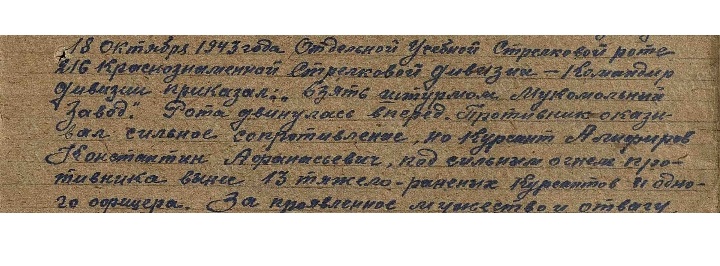 18 Октября 1943 года Отдельной Учебной Стрелковой роте
216 Краснознаменной Стрелковой дивизии – Командир
дивизии приказал:" Взять штурмом Мукомольный
Завод". Рота двинулась вперед. Противник оказы-
вал сильное сопротивление, но Курсант Алифиров
Константин Афанасьевич, под сильним огнем про-
тивника вынес 13 тяжело-раненых Курсантов и одно-
го офицера. За проявленное мужество и отвагу